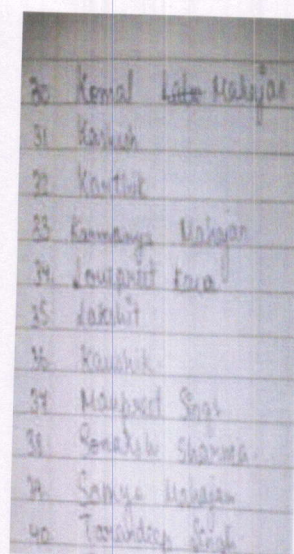 30 Komal Mahajan
31 Kashish
32 Karthik
33 Karmanya Mahajan
34. Lovepreet Kaur
35 Lakshit
36 Kaushik
37 Manpreet Singh
38 Sonakshi Sharma
39. Somya Mahajan
40 Tarandeep Singh